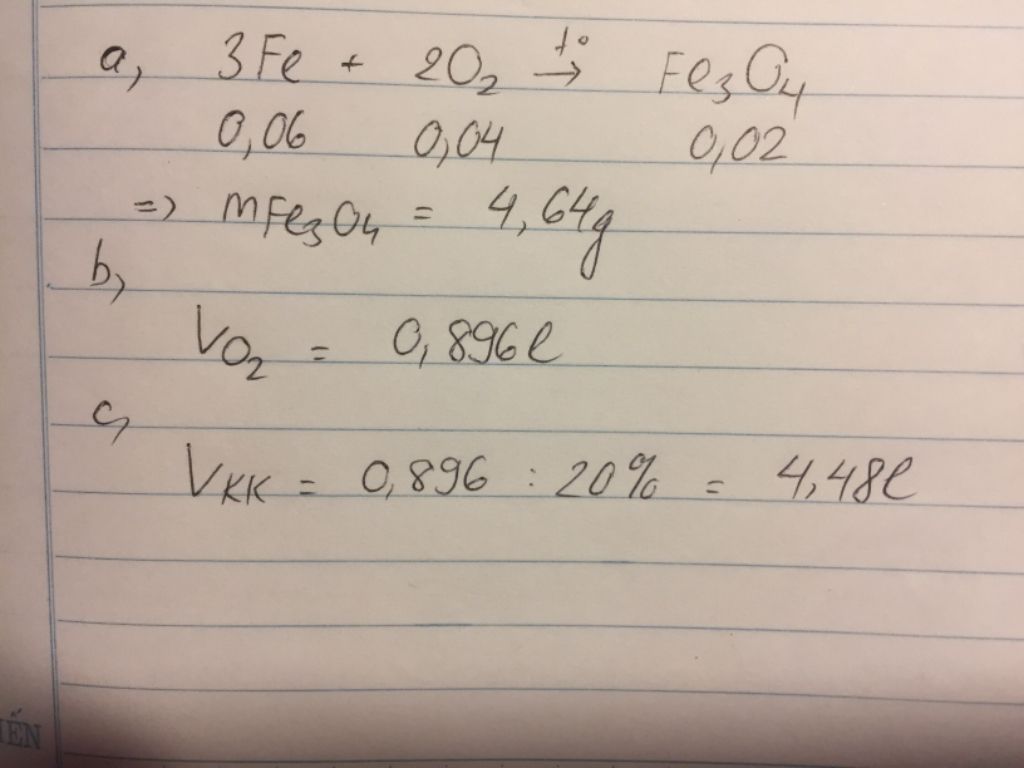 a, 3Fe + 2O₂ t° → Fe₃O₄
0,06 0,04 0,02
=> mFe₃O₄ = 4,64g
b,
VO₂ = 0,896l
c,
VKK = 0,896 : 20% = 4,48l
ẾN